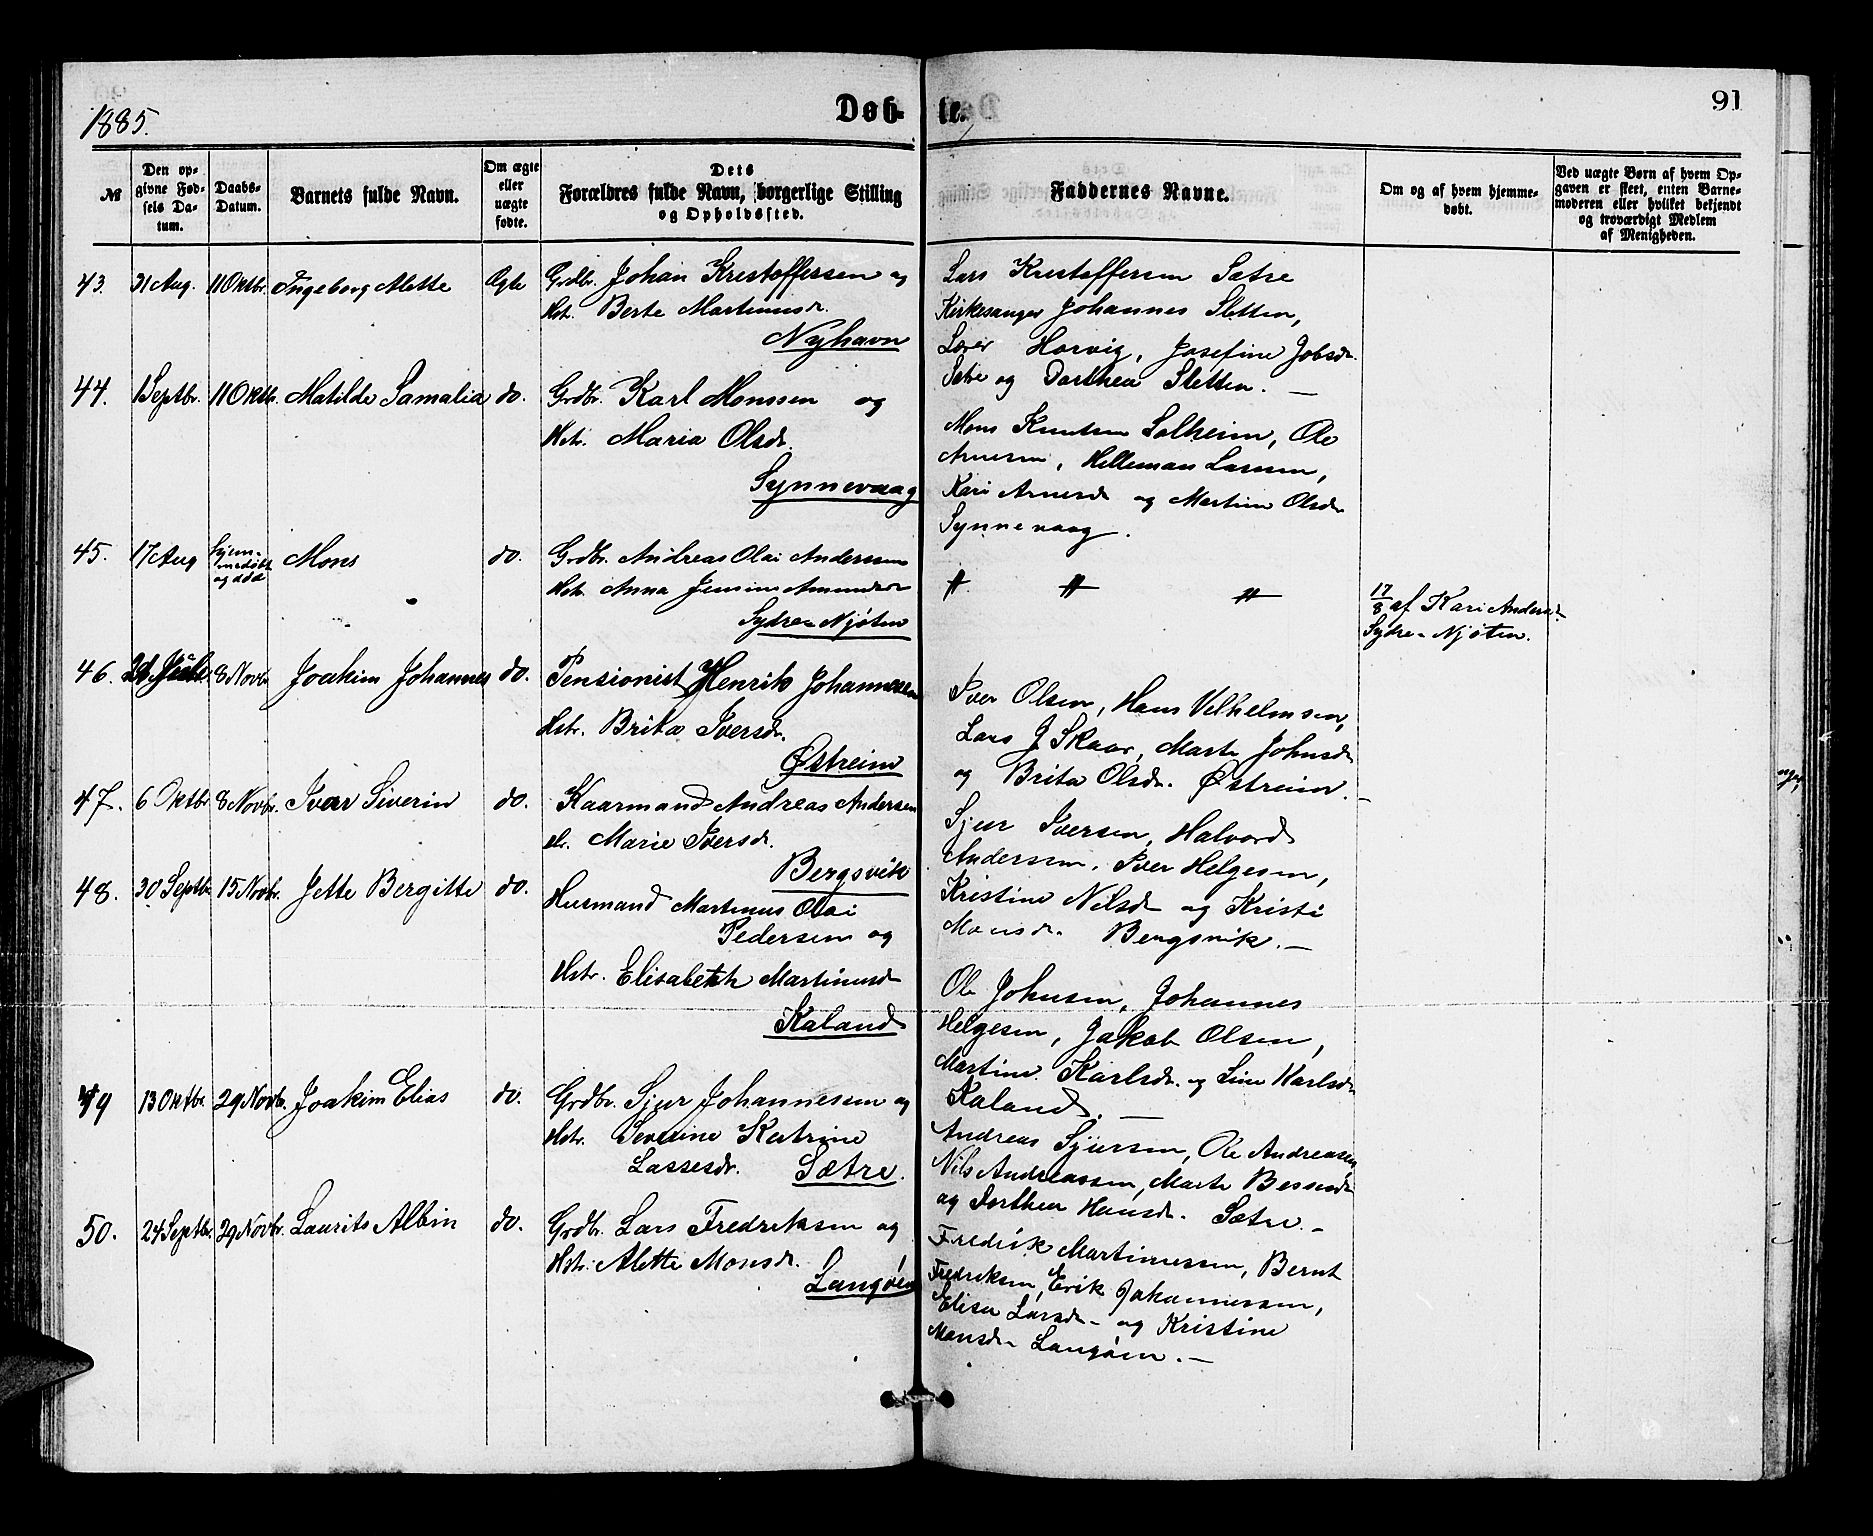 1885.
Døb-
te.
91
№
Den op-
givne Fød-
sels Da-
tum.
Daabs-
Datum.
Barnets fulde Navn.
Om ægte
eller
uægte
fødte.
Dets
Forældres fulde Navn, borgerlige Stilling
og Opholdssted.
Faddernes Navne.
Om og af hvem hjemme-
døbt.
Ved uægte Børn af hvem Op-
gaven er skeet, enten Barne-
moderen eller hvilket bekjendt
og troværdigt Medlem
af Menigheden.
43. 31 Aug. 11 Oktbr. Ingeborg Alette Ægte Grdbr. Johan Krestoffersen og
Hst. Berte Martinusdr.
Nyhavn
Lars Krestoffersen Sætre
Kirkesanger Johannes Sletten,
Lærer Horvig, Josefine Jobsdr.
Sætre og Dorthea Sletten. —
44. 1 Septbr. 11 Oktbr. Matilde Samalia do. Grdbr. Karl Monssen og
Hstr. Maria Olsdr.
Synnevaag
Mons Knutsen Solheim, Ole
Arnesen, Helleman Larssen,
Kari Arnesdr og Martine Olsdr
Synnevaag.
45. 17 Aug hjem-
medøbt
og død Mons do. Grdbr. Andreas Olai Anderssen
Hstr. Anna Jensine Amundsdr
Sydre-Njøten
17/8 af Kari Andersdr.
Sydre-Njøten.
46. 8 Novbr Joakim Johannes do. Pensionist Henrik Johannesen
Hstr. Brita Iversdr.
Østreim
Iver Olsen, Hans Velhelmsen,
Lars J Skaar, Marte Johnsdr
og Brita Olsdr. Østreim. —
47. 6 Oktbr 8 Novbr. Ivar Siverin do. Kaarmand Andreas Andersen
H. Marie Iversdr.
Bergsvik
Sjur Iversen, Halvord
Anderssen, Iver Helgesen,
Kristine Nilsdr og Kristi
Monsdr. Bergsvik. —
48. 30 Septbr 15 Novbr. Jette Bergitte do. Husmand Martinus Olai
Pedersen og
Hstr. Elisabeth Martinusdr
Kaland
Ole Johnsen, Johannes
Helgesen, Jakob Olsen,
Martine Karlsdr. og Line Karlsdr
Kaland. —
49 13 Oktbr. 29 Novbr. Joakim Elias do. Grdbr. Sjur Johannessen og
Hstr. Severine Katrine
Lassesdr. Sætre.
Andreas Sjursen, Ole Andreasen
Nils Andreassen, Marte Bessesdr
og Dorthea Hansdr. Sætre. —
50. 24 Septbr. 29 Novbr. Laurits Albin do. Grdbr. Lars Fredriksen og
Hstr. Alette Monsdr.
Langøen
Fredrik Martinussen, Bernt
Fredriksen, Erik Johannessen,
Elisa Larsdr- og Kristine
Monsdr Langøen. —